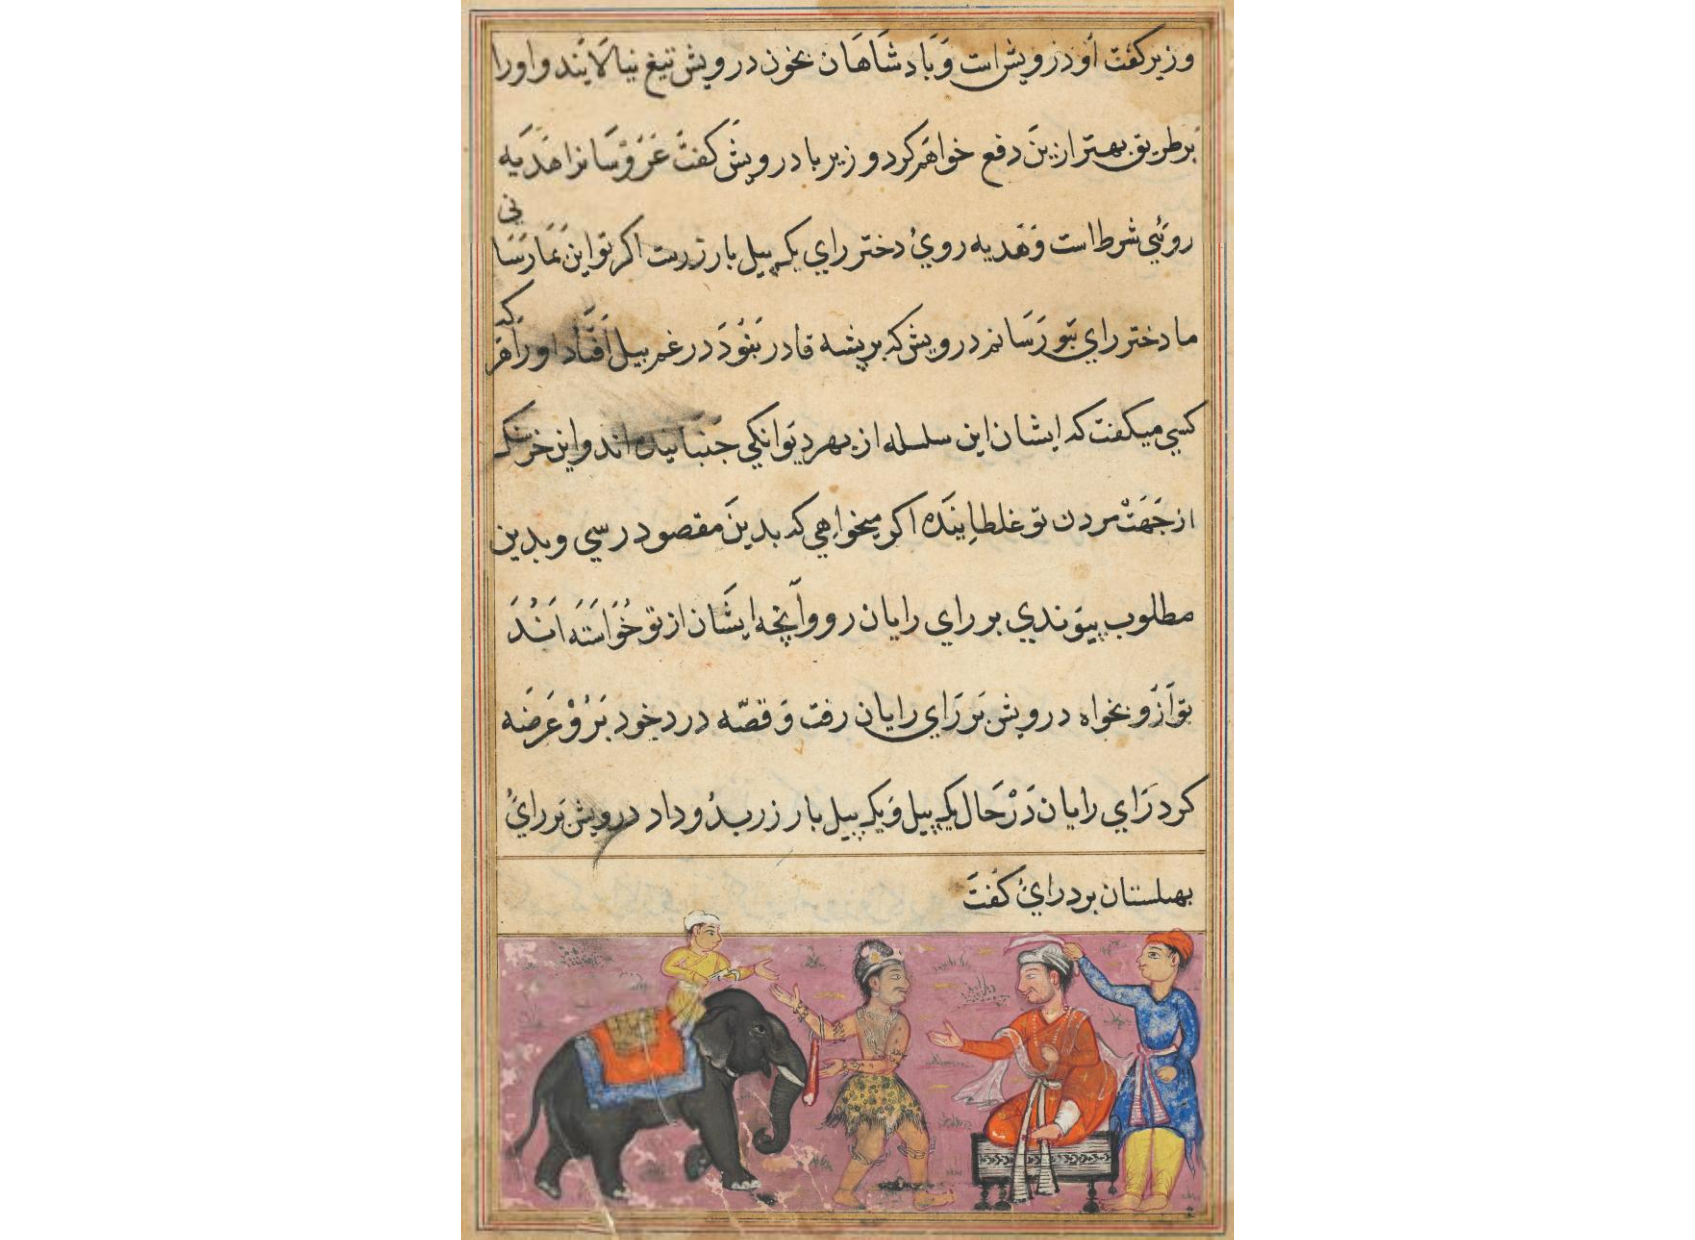 وزیر کفت او درویش است وَ بَادشَاهَان بخون درویش تیغ نیالایَند و اورا
بَرطریق بهتر ازینَ دفع خواهَم کرد وزیر با درویش کفتَ عَرُوْسَانرا هَدَیَه
روئی شرط است وَ هَدیه رویُ دختر رای یک پیل بار زرست اکر تو اینَ بَمَا رَسَانی
ما دختر رای بَتو رَسَانم درویش که بر پشه قادر نَبُوَدَ در غم پیل اُفتَاد اورا هَرکه
کسي میکفت که ایشان این سلسله از بهر دِیَوانکي جَنبَانیده اند و این خرسنک
از جَهَتْ مردن تو غلطاِنیَده اکر میخواهِي که بدینَ مقصود رسي و بدین
مطلوب پیوَندي بر رای رایان رو و آنچه ایشَان از تو خُوَاستَه اَنَدَ
تو اَزوَ بخواه درویش بَر رَاي رایان رفت وَ قصّه درد خود بَرُوْ عَرَضَه
کرد رَاي رایان دَرْحَال یک پیل وَ یک پیل بار زر بدُو داد درویش بَر رايُ
بهلستان برد رايُ کُفتَ